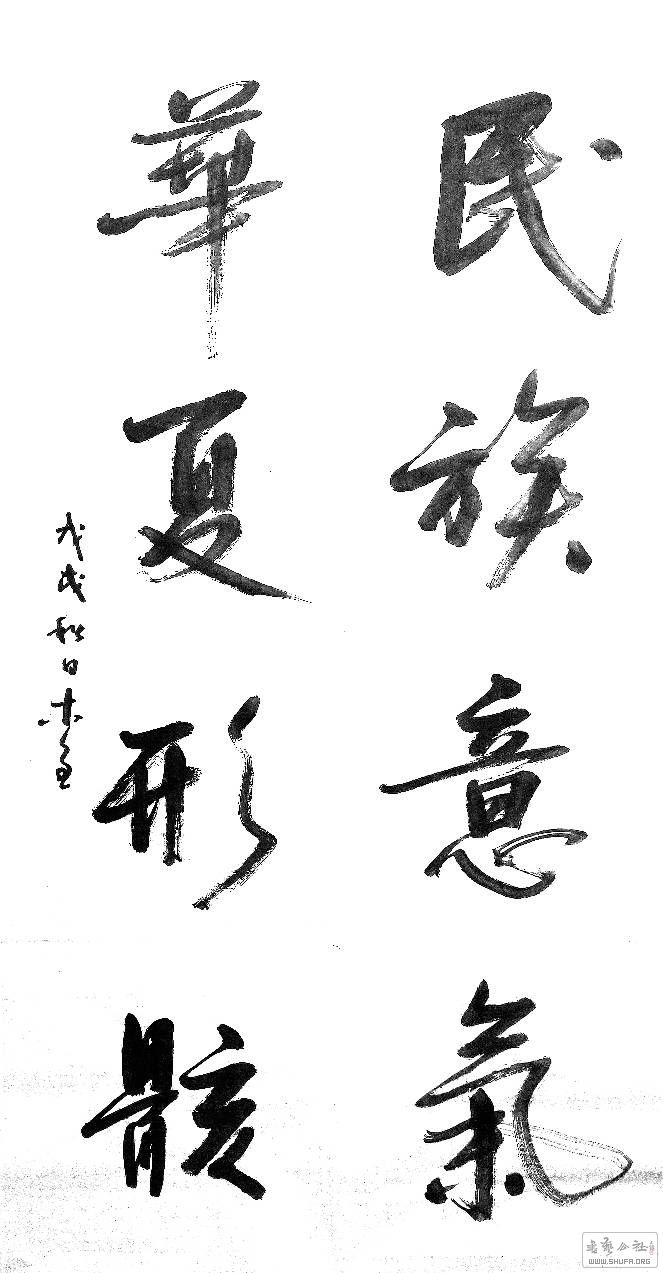 民族意氣
華夏形骸
戊戌秋日
WWW.SHUFA.ORG